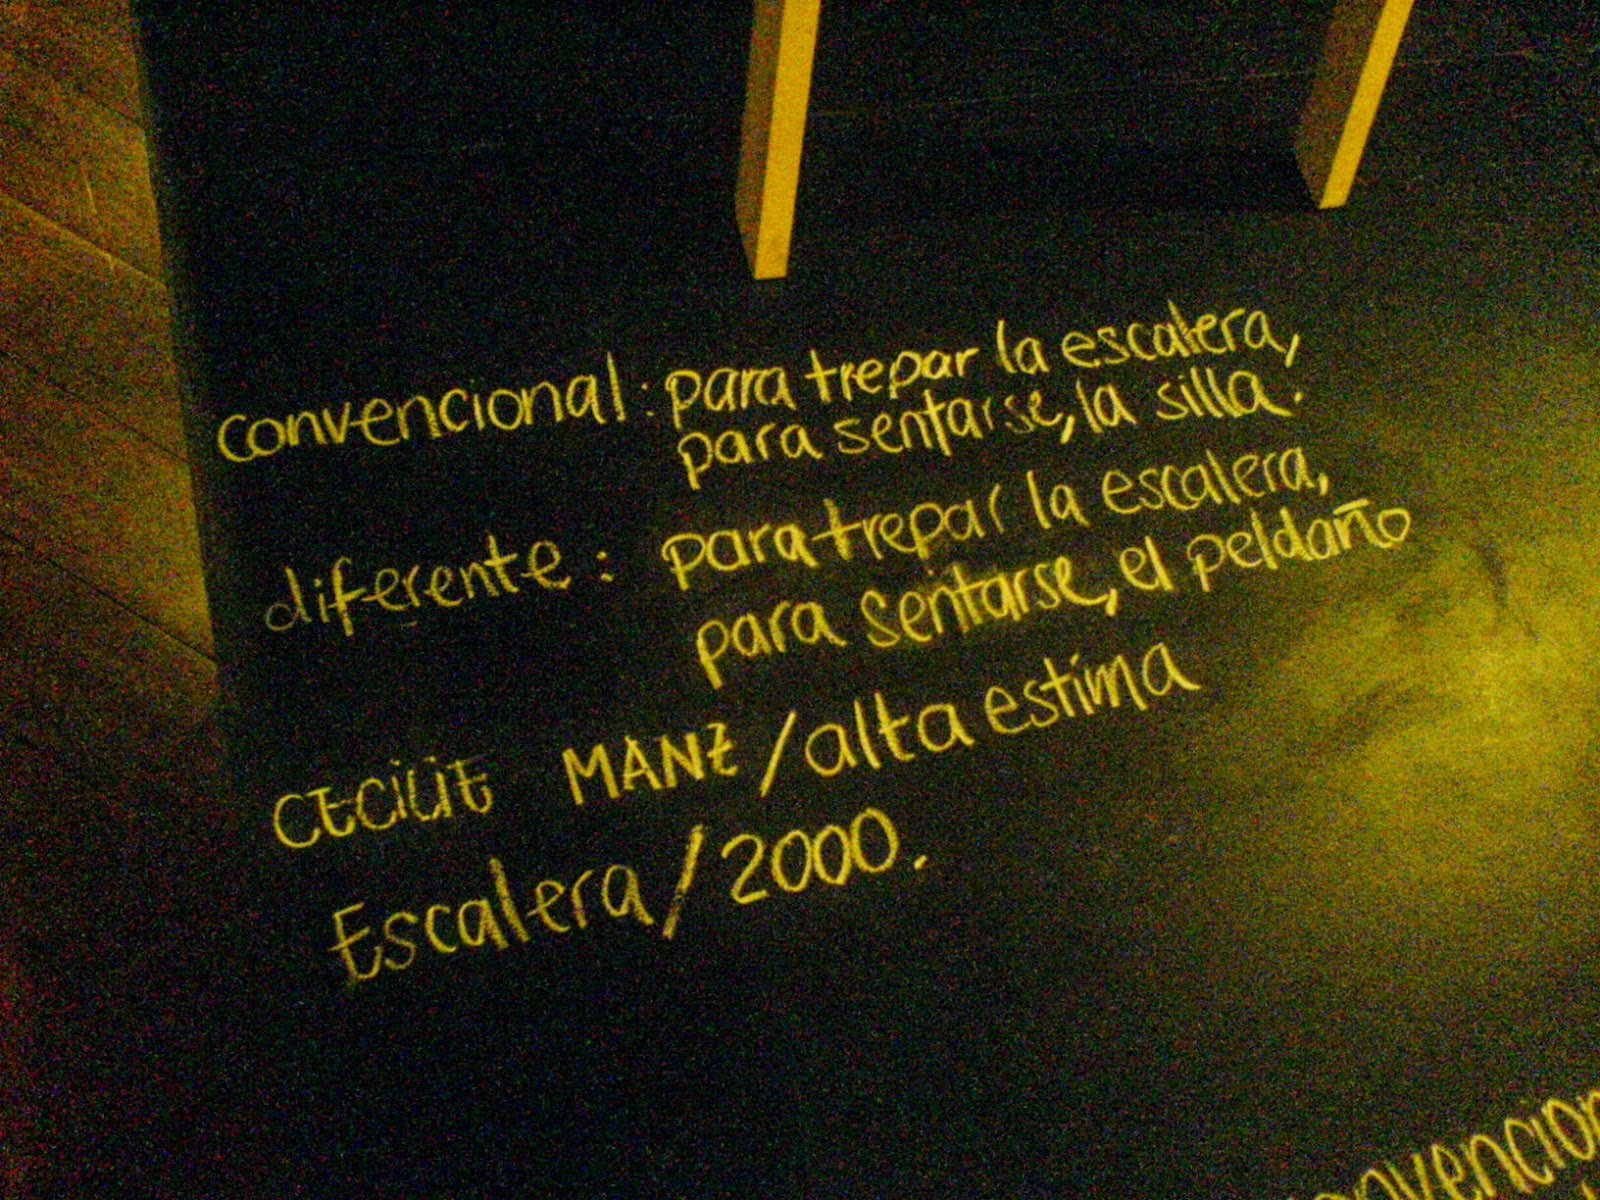 convencional: para trepar la escalera,
para sentarse, la silla.
diferente: para trepar la escalera,
para sentarse, el peldaño
CECILIE MANZ/alta estima
Escalera/2000.